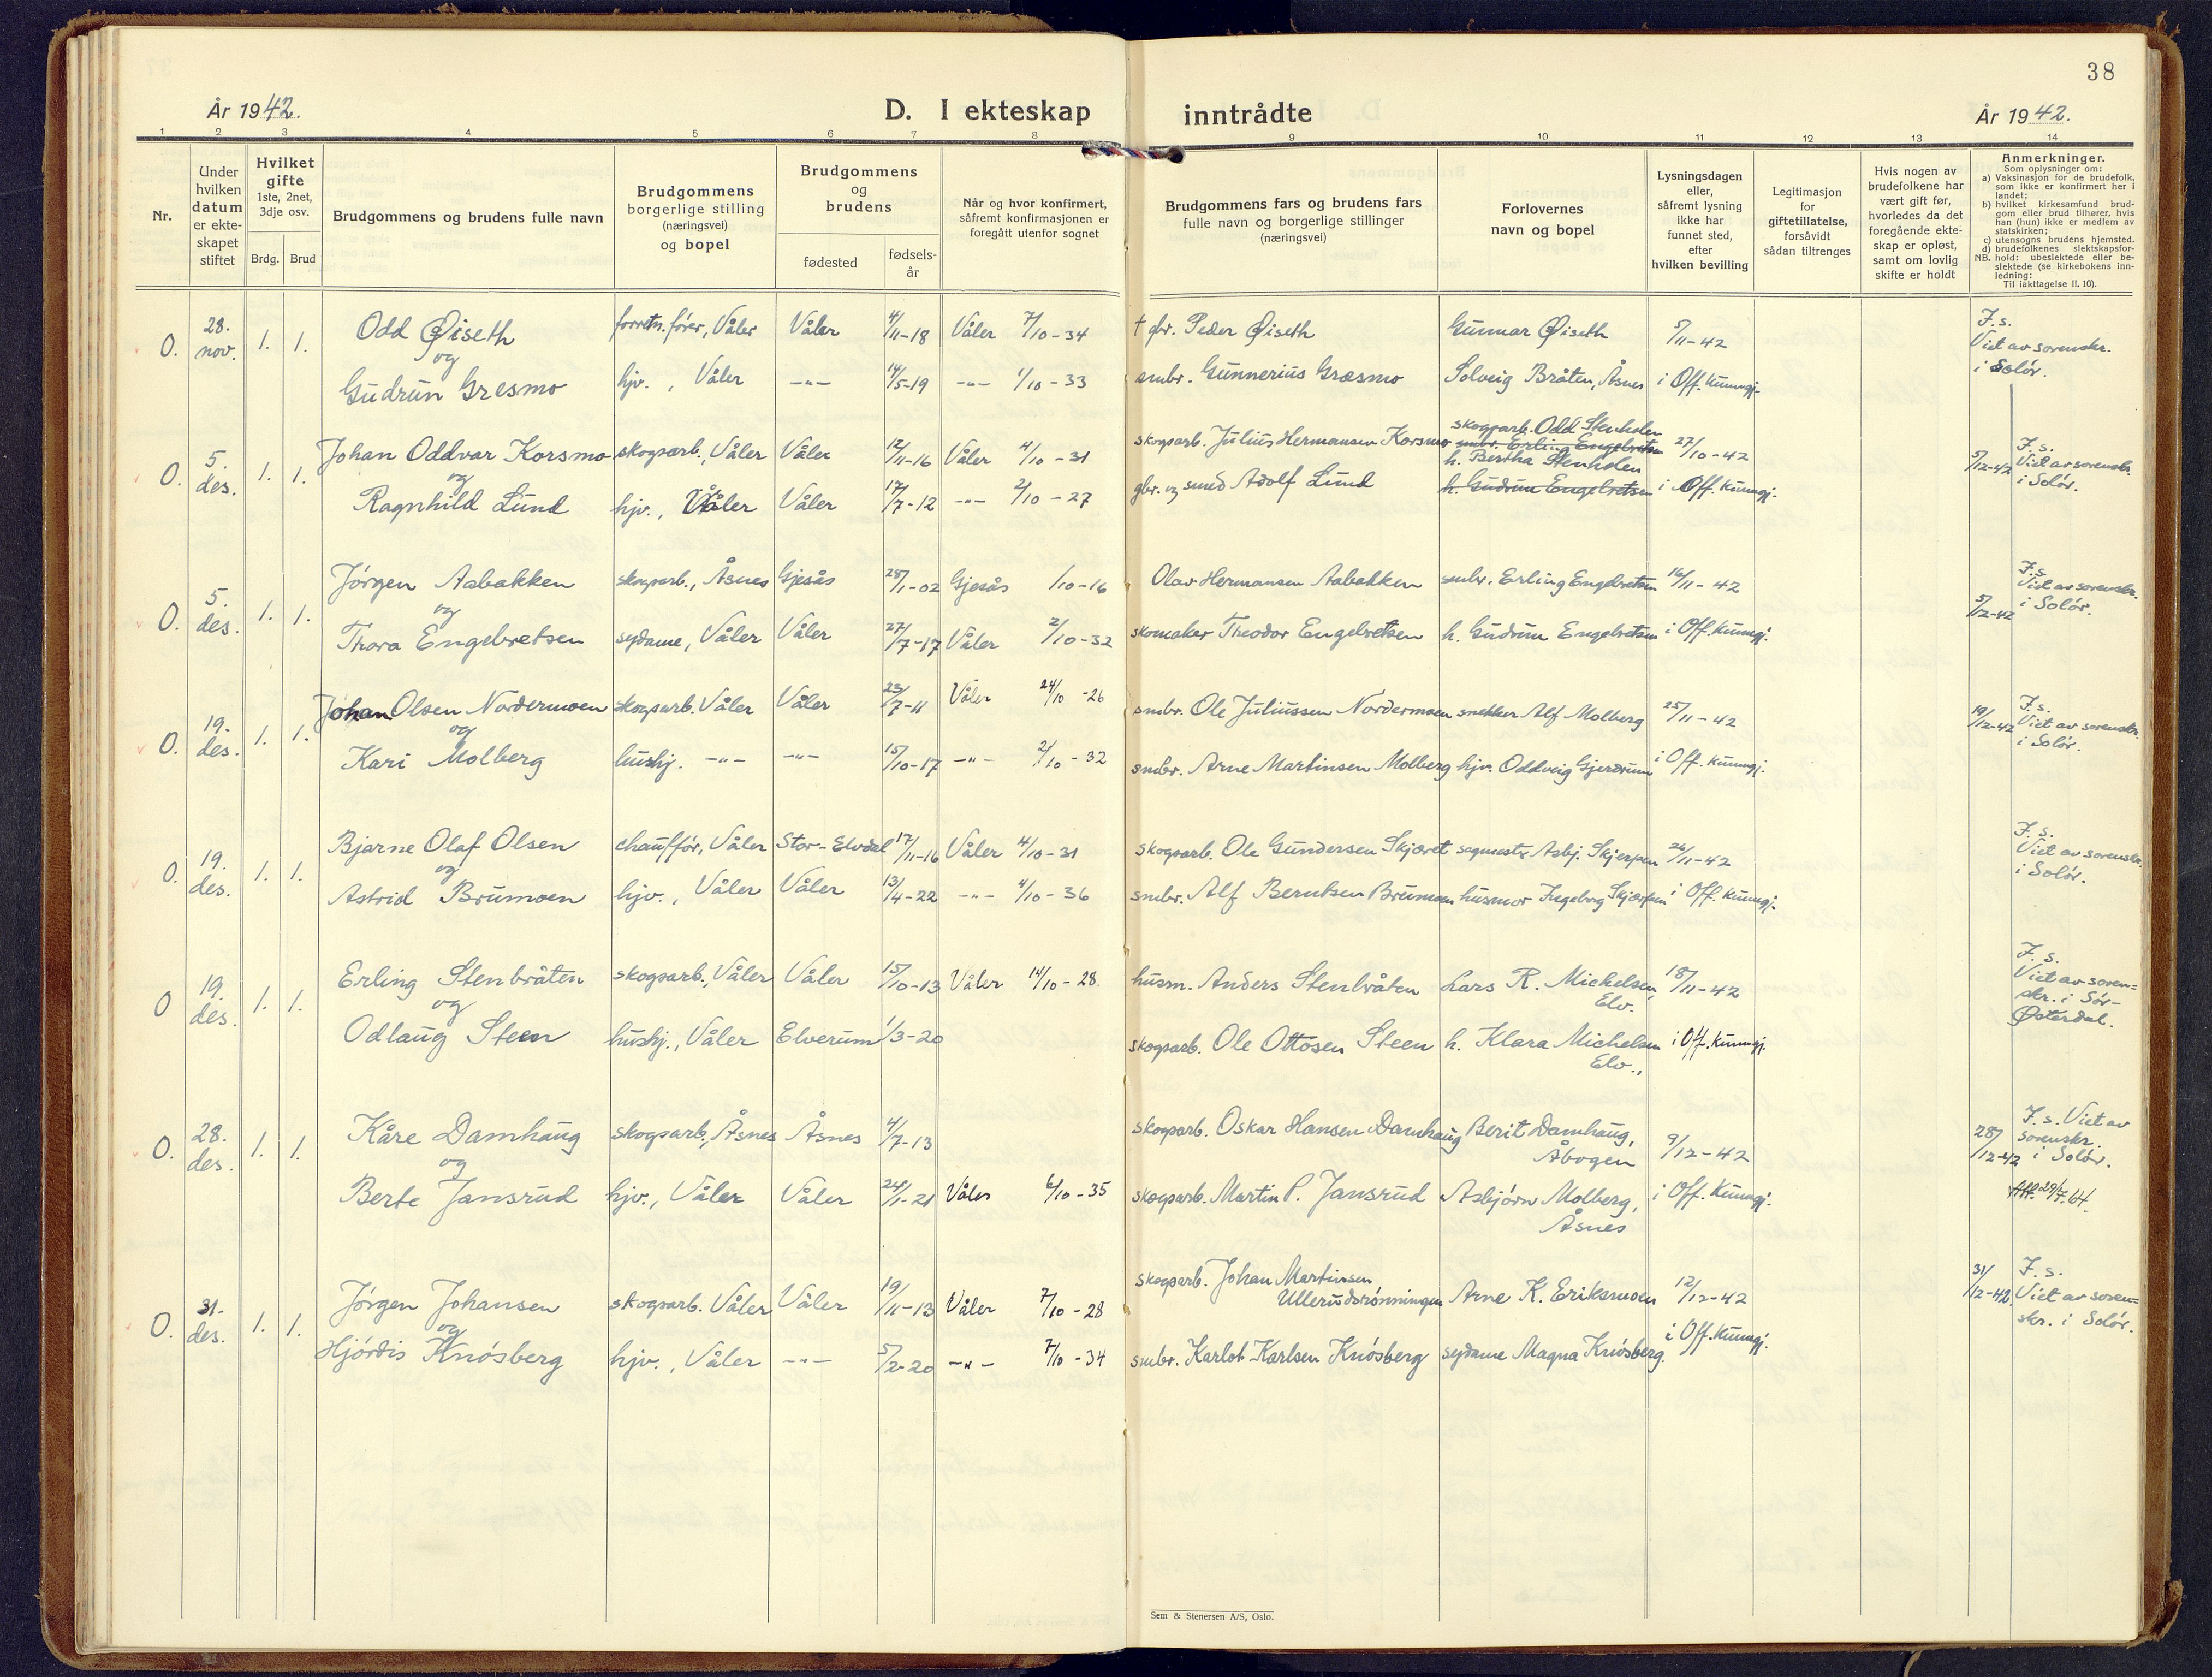 38
År 1942. D. I ekteskap inntrådte År 1942.
1 2 3 4 5 6 7 8 9 10 11 12 13 14
Nr.
Under hvilken datum er ekteskapet stiftet
Hvilket gifte 1ste, 2net, 3dje osv.
Brdg. Brud
Brudgommens og brudens fulle navn
Brudgommens borgerlige stilling (næringsvei) og bopel
Brudgommens og brudens
fødested
fødsels-år
Når og hvor konfirmert, såfremt konfirmasjonen er foregått utenfor sognet
Brudgommens fars og brudens fars fulle navn og borgerlige stillinger (næringsvei)
Forlovernes navn og bopel
Lysningsdagen eller, såfremt lysning ikke har funnet sted, efter hvilken bevilling
Legitimasjon for giftetillatelse, forsåvidt sådan tiltrenges
Hvis nogen av brudefolkene har vært gift før, hvorledes da det foregående ekte-skap er opløst, samt om lovlig skifte er holdt
Anmerkninger.
Som oplysninger om:
a) Vaksinasjon for de brudefolk, som ikke er konfirmert her i landet;
b) hvilket kirkesamfund brud-gom eller brud tilhører, hvis han (hun) ikke er medlem av statskirken;
c) utensogns brudens hjemsted.
d) brudefolkenes slektskapsfor-hold: ubeslektede eller be-slektede (se kirkebokens inn-ledning:
NB. Til iakttagelse II. 10).
O. 28. nov. 1. 1. Odd Øiseth forretn.fører, Våler Våler 4/11-18 Våler 7/10-34 † gbr. Peder Øiseth Gunnar Øiseth 5/11-42 F.s. Viet av sorenskr. i Solør.
og
Gudrun Gresmo hjv., Våler -"- 14/5-19 -"- 1/10-33 smbr. Gunnerius Græsmo Solveig Bråten, Åsnes i Off. Kunngj.
O. 5. des. 1. 1. Johan Oddvar Korsmo skogsarb., Våler Våler 12/11-16 Våler 4/10-31 skogsarb. Julius Hermansen Korsmo skogsarb. Odd Stenholen smbr. Erling Engebretsen 27/10-42 5/12-42 F.s. Viet av sorenskr. i Solør.
og
Ragnhild Lund hjv., Våler Våler 17/7-12 -"- 2/10-27 gbr. og smed Adolf Lund h. Bertha Stenholen h. Gudrun Engebretsen i Off. Kunngj.
O. 5. des. 1. 1. Jørgen Aabakken skogsarb., Åsnes Gjesås 28/1-02 Gjesås /10-16 Olav Hermansen Aabakken smbr. Erling Engebretsen 16/11-42 5/12-42 F.s. Viet av sorenskr. i Solør.
og
Thora Engebretsen sydame, Våler Våler 27/7-17 Våler 2/10-32 skomaker Theodor Engebretsen h. Gudrun Engebretsen i Off. Kunngj.
O. 19. des. 1. 1. Johan Olsen Nordermoen skogsarb. Våler Våler 23/7-11 Våler 24/10-26 smbr. Ole Juliussen Nordermoen snekker Alf Molberg 25/11-42 19/12-42 F.s. Viet av sorenskr. i Solør.
og
Kari Molberg hushj. -"- -"- 15/10-17 -"- 2/10-32 smbr. Arne Martinsen Molberg hjv. Oddveig Gjerdrum i Off. Kunngj.
O. 19. des. 1. 1. Bjarne Olaf Olsen chauffør, Våler Stor-Elvdal 17/11-16 Våler 4/10-31 skogsarb. Ole Gundersen Skjæret sagmestr. Asbj. Skjerpen 26/11-42 F.s. Viet av sorenskr. i Solør.
og
Astrid Brumoen hjv., Våler Våler 13/4-22 -"- 4/10-36 smbr. Alf Berntsen Brumoen husmor Ingeborg Skjærpen i Off. Kunngj.
O 19. des. 1. 1. Erling Stenbråten skogsarb., Våler Våler 15/10-13 Våler 14/10-28. husm. Anders Stenbråten Lars R. Mickelsen, Elv. 18/11-42 F.s. Viet av soren=skr. i Sør-Østerdal.
og
Odlaug Steen hushj., Våler Elverum 1/3-20 skogsarb. Ole Ottosen Steen h. Klara Michelsen Elv., i Off. Kunngj.
O. 28. des. 1. 1. Kåre Damhaug skogsarb., Åsnes Åsnes 4/7-13 skogsarb. Oskar Hansen Damhaug Berit Damhaug, Åbogen 9/12-42 28/12-42 F.s. Viet av sorenskr. i Solør.
og
Berte Jansrud hjv., Våler Våler 24/1-21 Våler 6/10-35 skogsarb. Martin P. Jansrud Asbjørn Molberg, Åsnes i Off. Kunngj.
O. 31. des. 1. 1. Jørgen Johansen skogsarb. Våler Våler 19/11-13 Våler 7/10-28 skogsarb. Johan Martinsen Ullerudsrønningen Arne K. Eriksmoen 12/12-42 31/12-42. F.s. Viet av soren=skr. i Solør.
og
Hjørdis Knøsberg hjv., Våler -"- 5/2-20 -"- 7/10-34 smbr. Karlot Karlsen Knøsberg sydame Magna Knøsberg. i Off. Kunngj.
Sem & Stenersen A/S, Oslo.